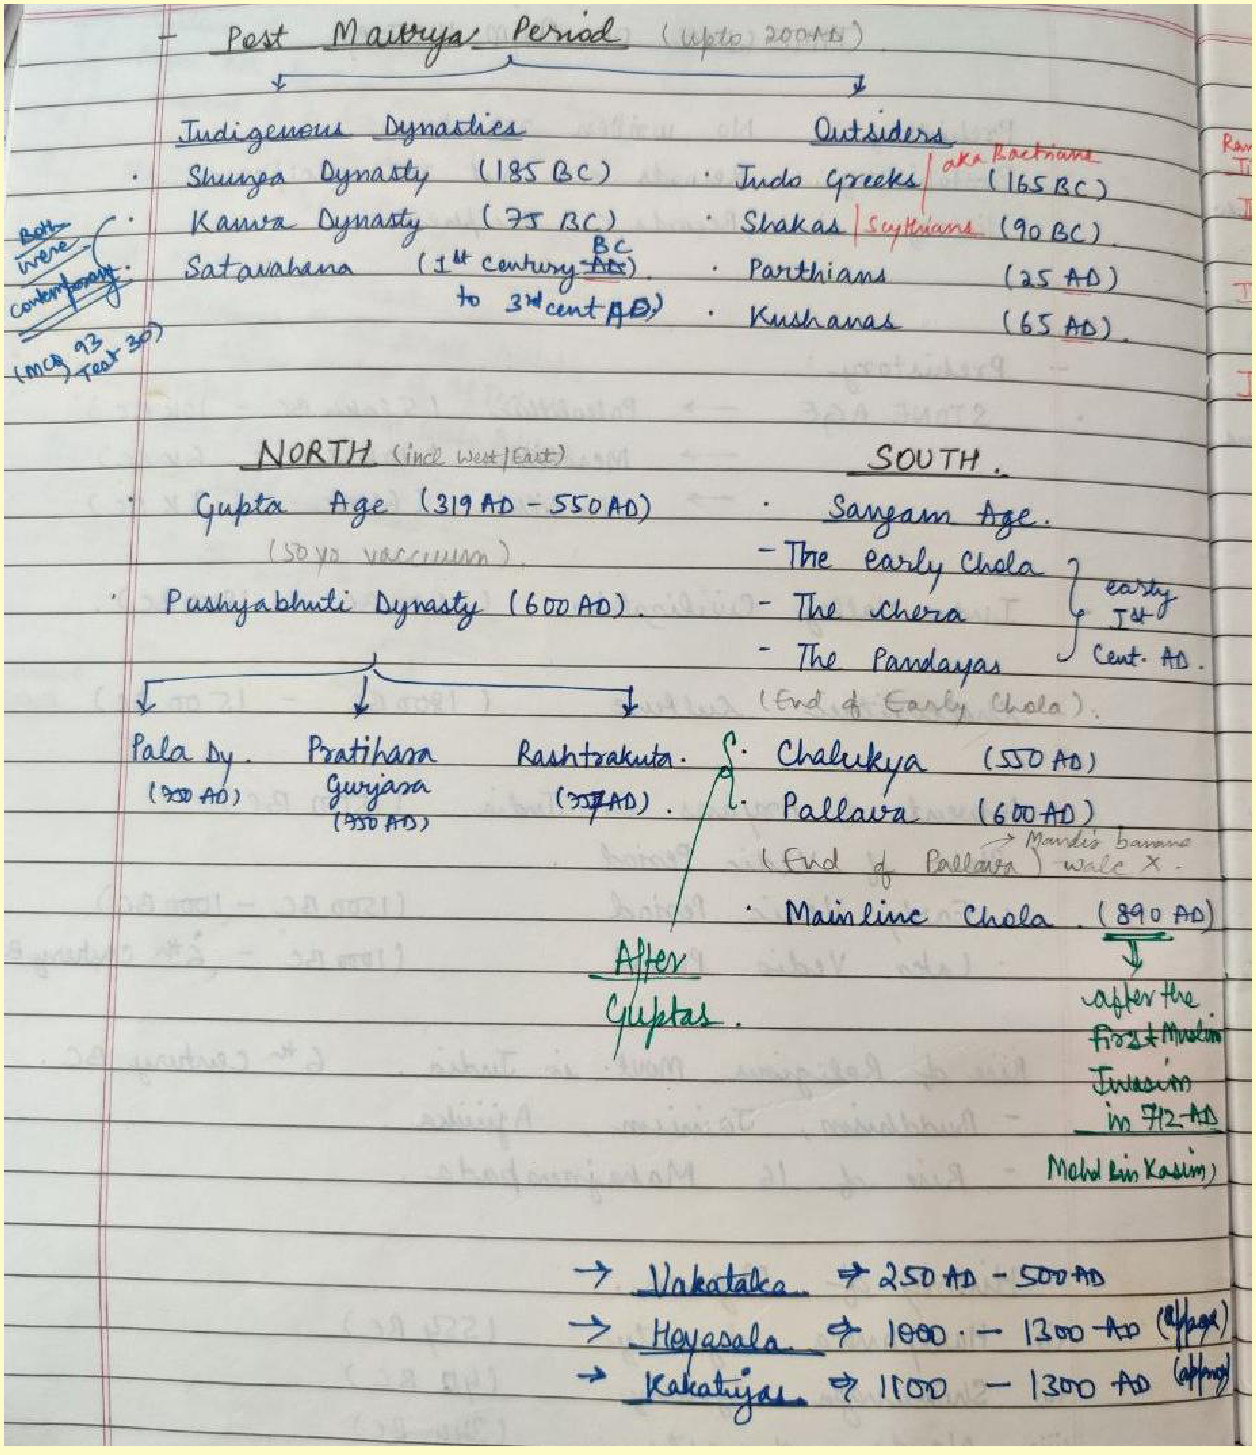 - Post Maurya Period (upto 200AD)
Indigenous Dynasties
Outsiders
· Shunga Dynasty (185 BC)
· Kanva Dynasty (75 BC)
· Satavahana (1st century AD BC) to 3rd cent AD)
Both were contemporary.
(MCQ 93 Test 30)
· Indo Greeks / aka Bactrians (165 BC)
· Shakas | Scythians (90 BC)
· Parthians (25 AD)
· Kushanas (65 AD)
NORTH (incl West/East)
· Gupta Age (319 AD - 550 AD)
(50 yo vaccuum).
· Pushyabhuti Dynasty (600 AD)
Pala Dy. (750 AD)
Pratihara Gurjara (750 AD)
Rashtrakuta. (757 AD).
SOUTH.
· Sangam Age.
- The early Chola
- The chera
- The Pandayas
early Ist Cent. AD.
(End of Early Chola).
· Chalukya (550 AD)
· Pallava (600 AD)
(End of Pallava) → Mandir banane wale X.
· Mainline Chola. (890 AD)
After Guptas.
after the
first Muslim
Invasion
in 712 AD
Mohd bin Kasim)
→ Vakataka → 250 AD - 500 AD
→ Hoyasala → 1000 - 1300 AD (approx)
→ Kakatiyas → 1100 - 1300 AD (approx)